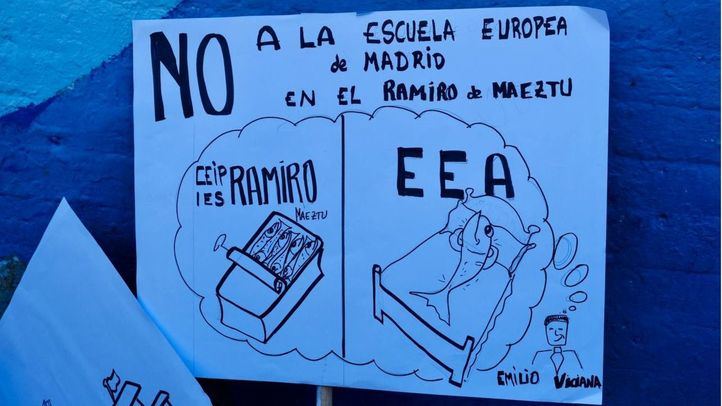 NO A LA ESCUELA EUROPEA
de MADRID
EN EL RAMIRO de MAEZTU
CEIP
IES RAMIRO
MAEZTU
EEA
EMILIO VICIANA